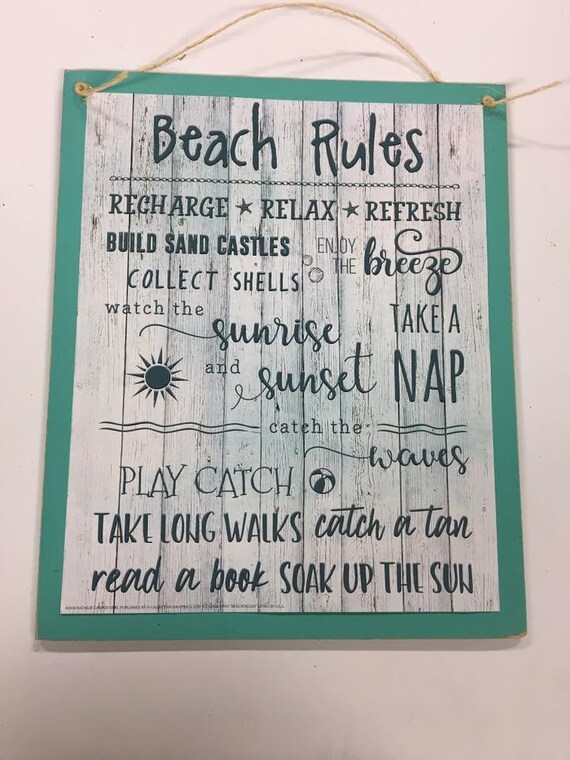 Beach Rules
RECHARGE ★ RELAX ★ REFRESH
BUILD SAND CASTLES
ENJOY THE breeze
COLLECT SHELLS
watch the
sunrise
and sunset
TAKE A
NAP
catch the
waves
PLAY CATCH
TAKE LONG WALKS catch a tan
read a book SOAK UP THE SUN